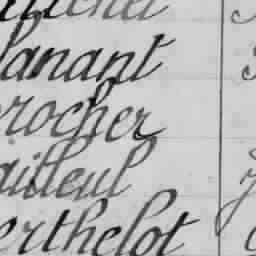 lanant
rocher
ailleul
erthelot